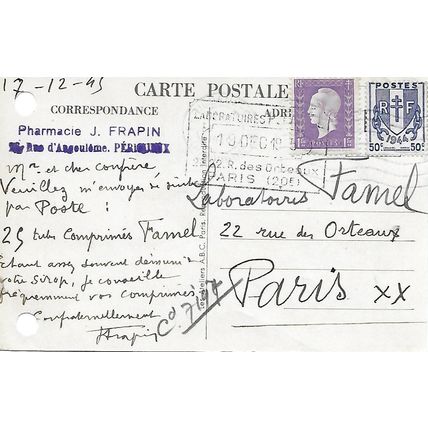 17-12-45
CARTE POSTALE
CORRESPONDANCE
ADR
Pharmacie J. FRAPIN
Rue d'Angoulême. PÉRIGUEUX
Mr et cher confrère,
Veuillez m'envoyer de suite
par Poste :
25 tubes Comprimés Famel
Etant assez souvent démuni
votre Sirop, je conseille
fréquemment vos Comprimés
Confraternellement
JFrapin
Cd 717
Les Ateliers A.B.C. Paris. Reproduction Interdite
LABORATOIRES
18 DEC 19
22.R.des Orteaux
PARIS (20E)
POSTES
1F
POSTES
R F
1944
50c 50c
Laboratoires Famel
22 rue des Orteaux
Paris XX